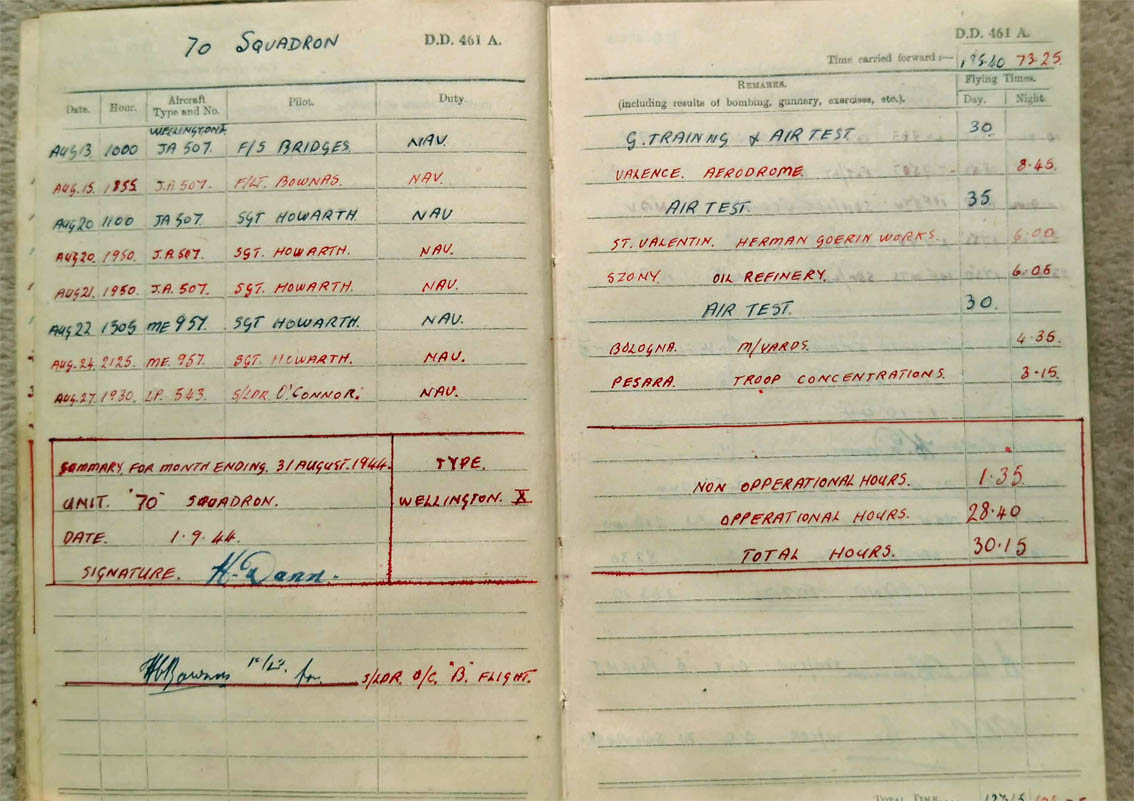 70 SQUADRON D.D. 461 A.
Date. Hour. Aircraft Type and No. Pilot. Duty.
WELLINGTON X
AUG 13 1000 JA 507. F/S BRIDGES. NAV.
AUG. 15. 1855 J.A. 507. F/LT. BOWNAS. NAV.
AUG 20 1100 JA 507. SGT HOWARTH NAV
AUG 20. 1950. J.A. 507. SGT. HOWARTH. NAV.
AUG 21. 1950. J.A. 507. SGT. HOWARTH. NAV.
AUG 22 1505 ME 957. SGT HOWARTH. NAV.
AUG. 24. 2125. ME. 957. SGT. HOWARTH. NAV.
AUG. 27. 1930. LP. 543. S/LDR. O'CONNOR. NAV.
SUMMARY, FOR MONTH ENDING. 31 AUGUST. 1944. TYPE.
UNIT. "70" SQUADRON. WELLINGTON. X
DATE. 1. 9. 44.
SIGNATURE. H. Dann.
HBownas F/Lt. for S/LDR. O/C, "B" FLIGHT.
D.D. 461 A.
Time carried forward :— 73.25
REMARKS. Flying Times.
(including results of bombing, gunnery, exercises, etc.). Day. Night.
G. TRAINNG & AIR TEST 30
VALENCE. AERODROME. 8.45.
AIR TEST. 35.
ST. VALENTIN. HERMAN GOERIN WORKS. 6.00
SZONY. OIL REFINERY. 6.05
AIR TEST. 30.
BOLOGNA. M/YARDS. 4.35.
PESARA. TROOP CONCENTRATIONS. 3.15.
NON OPPERATIONAL HOURS. 1.35
OPPERATIONAL HOURS. 28.40
TOTAL HOURS. 30.15
TOTAL TIME